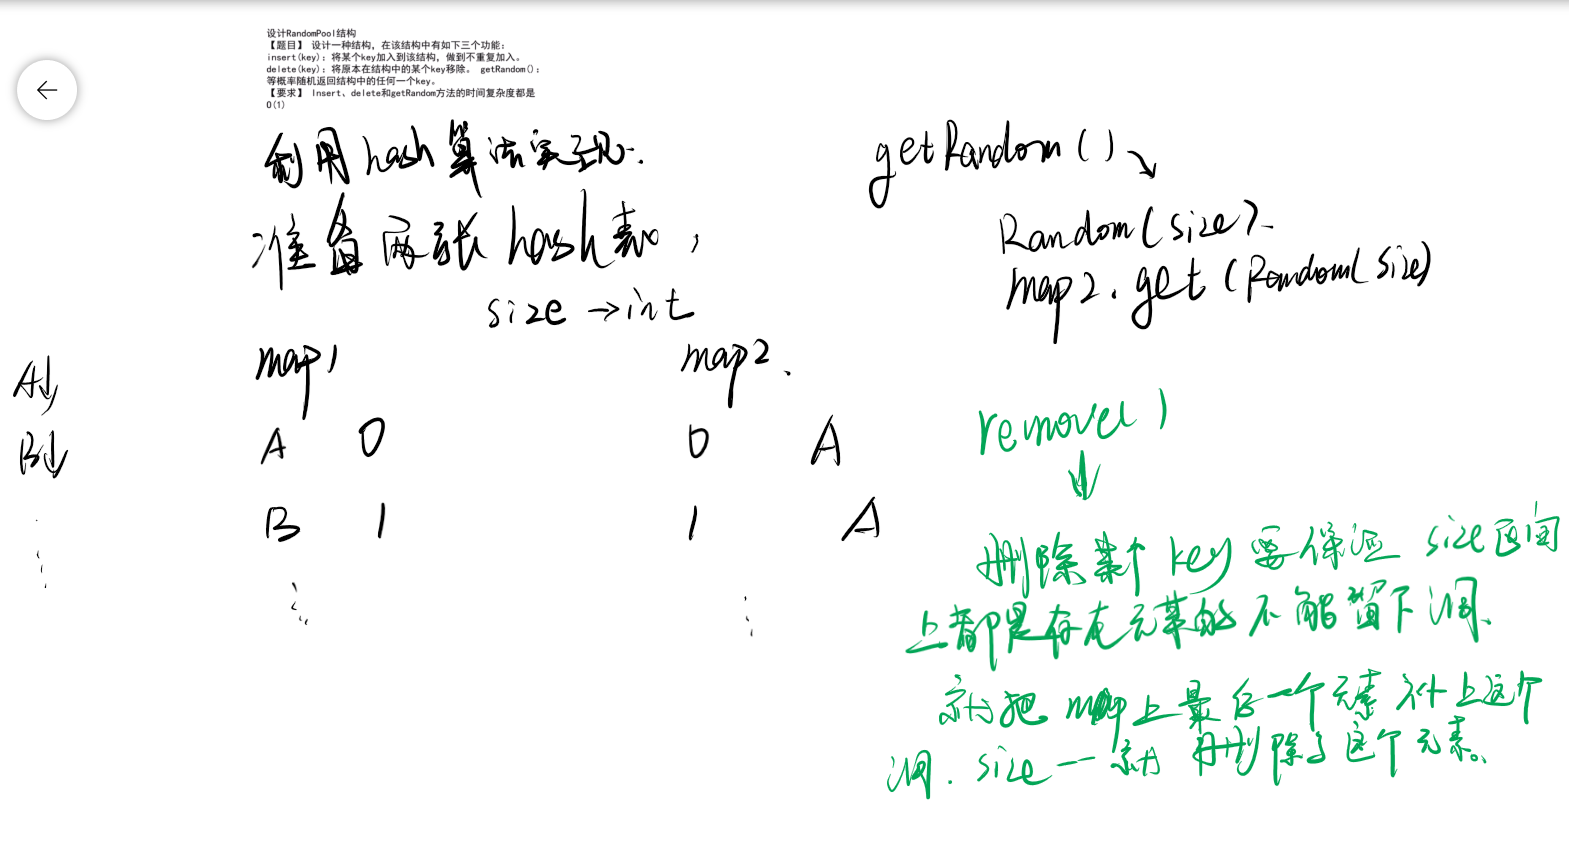 设计RandomPool结构
【题目】 设计一种结构，在该结构中有如下三个功能：
insert(key)：将某个key加入到该结构，做到不重复加入。
delete(key)：将原本在结构中的某个key移除。 getRandom()：
等概率随机返回结构中的任何一个key。
【要求】 Insert、delete和getRandom方法的时间复杂度都是
O(1)
利用hash算法实现.
准备两张hash表，
size →int
map1
map2.
A↓
B↓
A 0
0 A
B 1
1 A
getRandom()↘
Random(size).
map2.get(Random(size)
remove()
↓
删除某个key要保证size区间
上都是存在元素的不能留下洞、
就把map上最后一个元素补上这个
洞.size--就删除了这个元素。